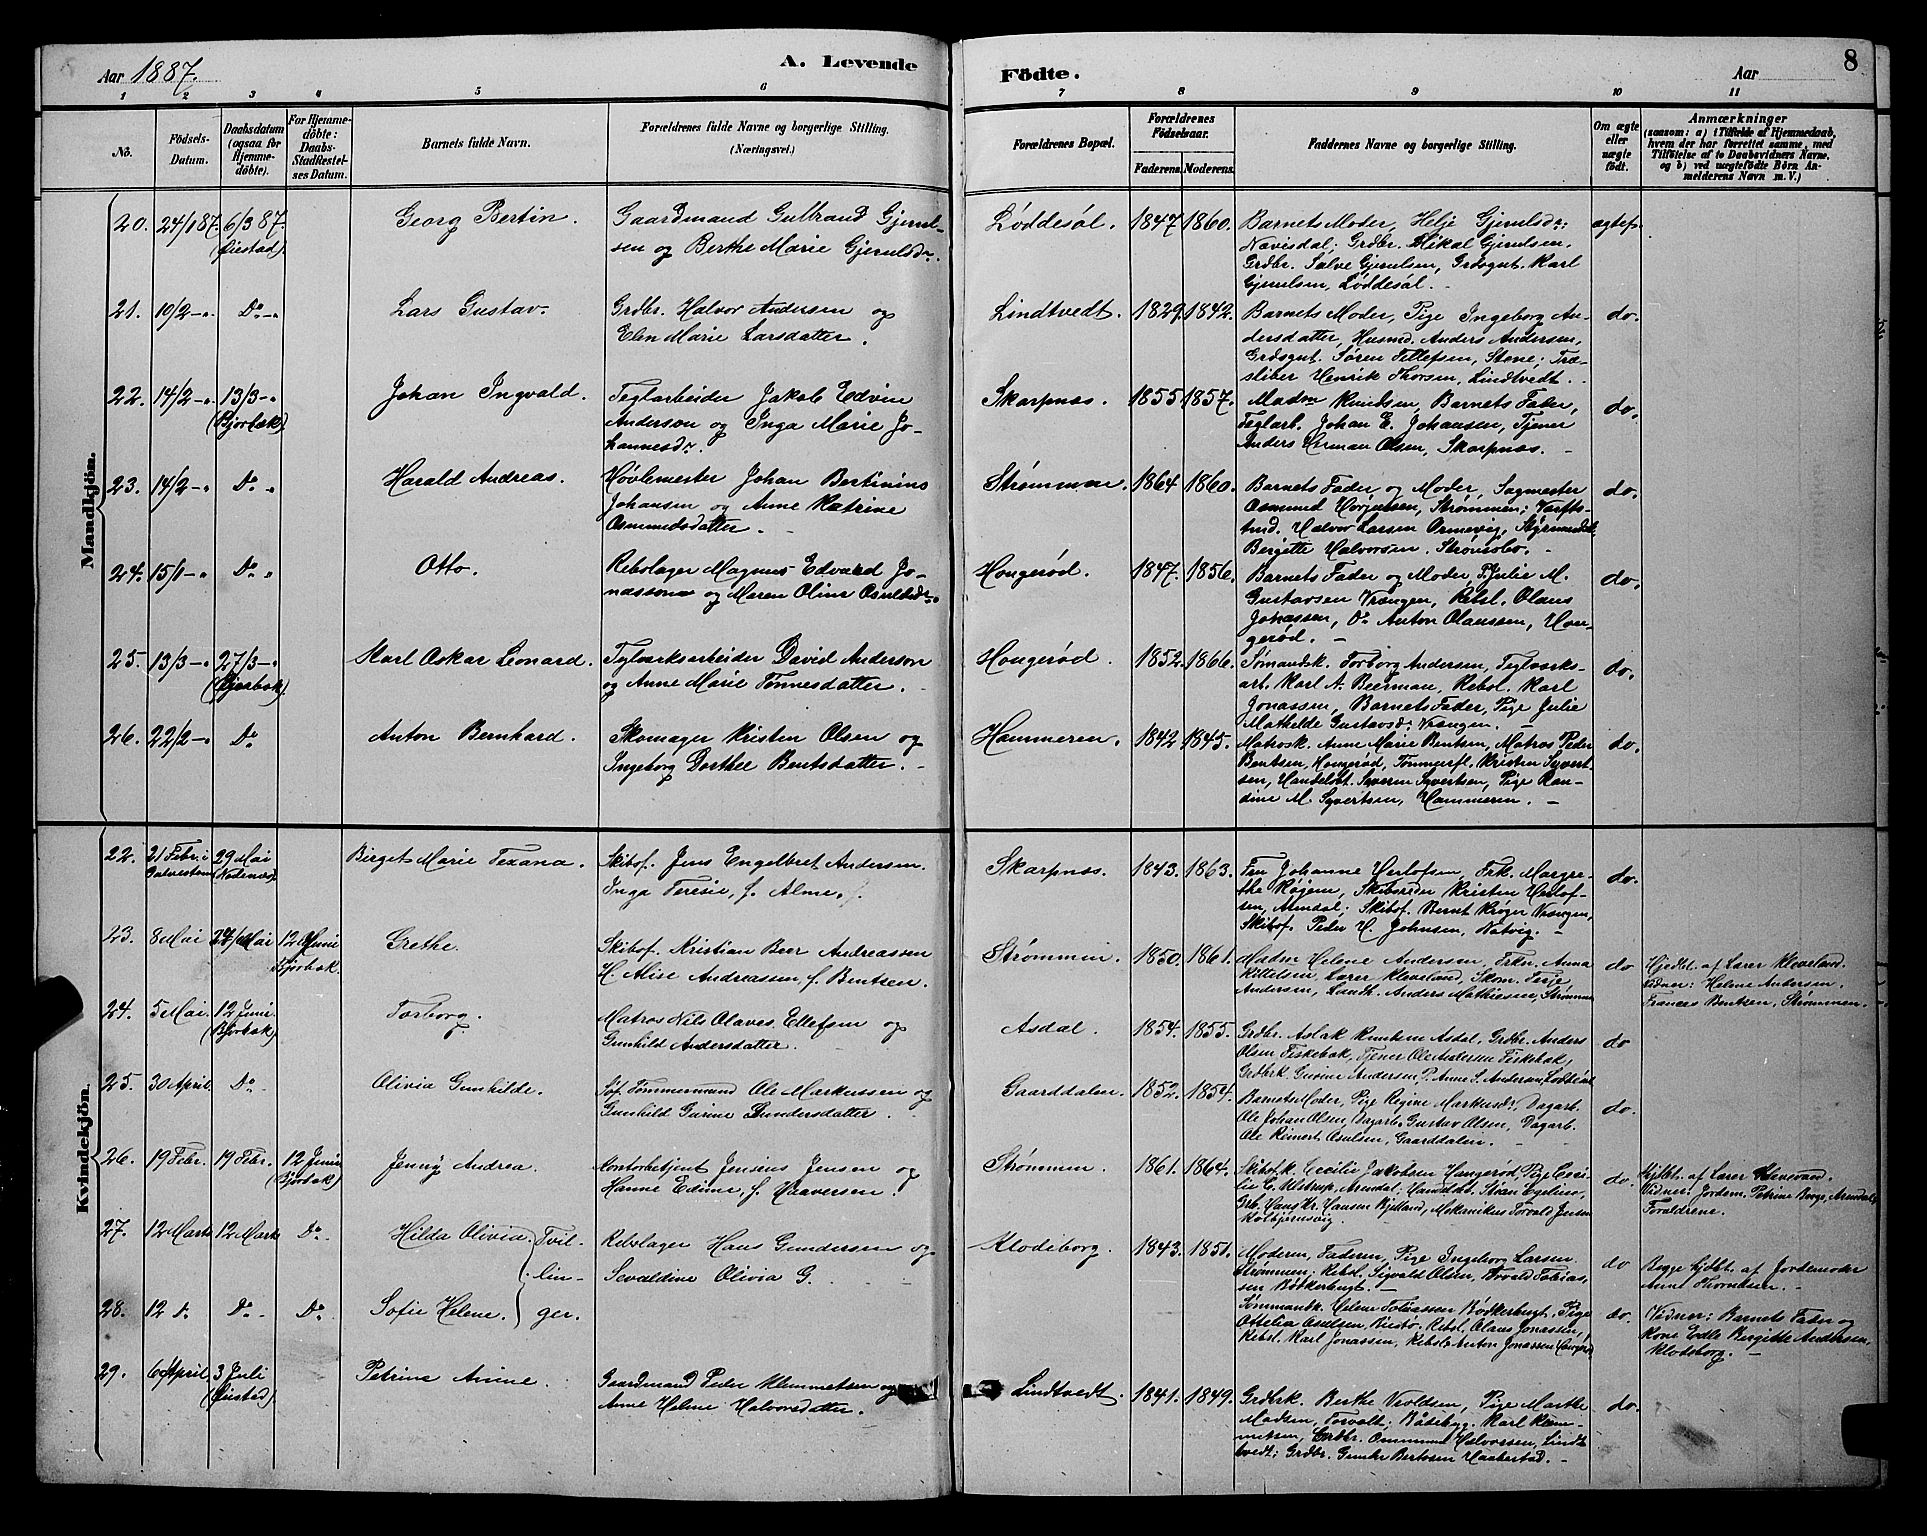 Aar 1887. A. Levende
Födte. Aar 8
1 2 3 4 5 6 7 8 9 10 11
No.
Födsels-
Datum.
Daabsdatum
(ogsaa for
Hjemme-
döbte).
For Hjemme-
döbte:
Daabs-
Stadfæstel-
ses Datum.
Barnets fulde Navn.
Forældrenes fulde Navne og borgerlige Stilling.
(Næringsvei.)
Forældrenes Bopæl.
Forældrenes
Födselsaar.
Faderens. Moderens.
Faddernes Navne og borgerlige Stilling.
Om ægte
eller
uægte
födt.
Anmærkninger
(saasom: a) i Tilfælde af Hjemmedaab,
hvem der har forrettet samme, med
Tilföielse af to Daabsvidners Navne,
og b) ved uægtefödte Börn An-
melderens Navn m. V.)
Mandkjön.
20. 24/1 87. 6/3 87. Georg Bertin. Gaardmand Gulbrand Gjeruls-
(Øiestad). sen og Berthe Marie Gjerulsdr.
Løddesøl. 1847 1860. Barnets Moder, Helje Gjerulsdr: ægtef.
Navisdal; Grdbr. Mikal Gjerulsen,
Grdbr. Salve Gjerulsen, Grdsgut. Karl
Gjerulsen, Løddesøl. -
21. 10/2 -„ Do -„ Lars Gustav. Grdbr. Halvor Andersen og
Elen Marie Larsdatter.
Lindtvedt. 1829. 1842. Barnets Moder, Pige Ingeborg An- do.
dersdatter, Husmd. Anders Andersen,
Grdsgut. Søren Tellefsen, Stene; Træ-
sliber Henrik Thorsen, Lindtvedt.
22. 14/2 -„ 13/3 -„ Johan Ingvald. Teglarbeider Jakob Edvin
(Bjorbæk). Anderson og Inga Marie Jo-
hannesdr.
Skarpnæs. 1855 1857. Madm Knudsen, Barnets Fader, do.
Teglarb. Johan E. Johansen, Tjener
Anders Herman Olsen, Skarpnæs. -
23. 14/2 -„ Do „ Harald Andreas. Høvlemester Johan Bertinius
Johansen og Anne Katrine
Osmundsdatter -
Strømmen. 1864 1860. Barnets Fader og Moder, Sagmester do.
Osmund Strømmen;
Halvor Larsen Ormevig,
Bergitte Halvorsen.
24. 15/1 -„ Do „ Otto. Rebslager Magnus Edvard Jo-
nassen og Maren Oline
Hongerød. 1847. 1856. Barnets Fader og Moder, P. Julie M. do.
Gustavsen Vrængen, Rebsl. Olaus
Johnassen, Do Anton Olaussen, Hon-
gerød. -
25. 13/3 -„ 27/3 -„ Karl Oskar Leonard. Teglværksarbeider David Anderson
(Bjorbæk) og Anne Marie Tønnesdatter.
Hongerød. 1852. 1866. Sømandsk. Torborg Andersen, Teglværks- do.
arb. Karl A. Beerman, Rebsl. Karl
Jonassen, Barnets Fader, Pige Julie
Mathilde Gustavsdr. Vrængen. -
26. 22/2 -„ Do Anton Bernhard. Skomager Kristen Olsen og
Ingeborg Dorthee Bentsdatter. -
Hammeren. 1842 1845. Matrosk. Anne Marie Bentsen, Matros Peder do.
Bentsen, Hongerød, Tømmerfl. Kristen Syvert-
sen, Handelsbt. Severin Syvertsen, Pige Ran-
dine M. Syvertsen, Hammeren. -
Kvindekjön.
22. 21 Febr. i 29 Mai Birget Marie Texana. Skibsf. Jens Engelbret Andersen.
Galvestonn (Nedenæs) Inga Teresie, f. Alme.
Skarpnæs. 1843. 1863. Fru Johanne Herlofsen, Frk. Margre- do.
the Røgem, Skibsreder Kristen Herlof-
sen, Arendal; Skibsf. Bernt Krøger Vrængen,
Skibsf. Peder H. Johnsen, Natvig. -
23. 8 Mai 24/ Mai 12 Juni Grethe. Skibsf. Kristian Beer Andreassen
Bjorbæk. H. Alise Andreassen f. Bentsen.
Strømmen. 1850. 1861. Madm Helene Andersen, Frkn. Anna do
Kittelsen, Lærer Kleveland, Skom. Terje
Andersen, Landh. Anders Mathiesen, Strømmen
Hjedbt. af Lærer Kleveland.
Vidner: Helene Andersen.
Frances Bentsen, Strømmen.
24. 5 Mai 12 Juni Torborg. Matros Nils Olaves Ellefsen og
(Bjorbæk) Gunhild Andersdatter.
Asdal. 1854. 1855. Grdbr. Aslak Knutsen Asdal, Grdbr. Anders do
Olsen Fiskebæk, Tjener Ole Andersen Fiskebæk,
Grdbrk. Gurine Andersen, P. Anne S. Andersen, Løddesøl
25. 30 April Do - Olivia Gunhilde. Søf. Tømmermand Ole Markussen og
Gunhild Gurine Gundersdatter.
Gaarddalen. 1852. 1854. Barnets Moder, Pige Regine Markusdr, Dagarb. do.
Ole Johan Olsen, Dagarb. Gustav Olsen, Dagarb.
Ole Reinert Osulsen, Gaarddalen. -
26. 19 Febr. 19 Febr. 12 Juni Jenny Andrea. Kontorbetjent Jensius Jensen og
(Bjorbæk) Hanne Edine, f. Haaversen.
Strømmen. 1861. 1864. Skibsf.k. Cecilie Jakobsen Hangerød, Pige Ceci- do.
lie C. Arendal; Søren
Hans Kr. Hansen Bjelland, Mekanikus Torvald Jensen
Kolbjørnsvig.
Hjdbt. af Lærer Kleveland
Vidner: Jordem. Petrine Berge, Arendal,
Forældrene.
27. 12 Marts 12 Marts Do - Hilda Olivia. Tvil- Rebslager Hans Gundersen og
lin- Sevaldine Olivia G.
Klodeborg. 1843. 1851. Moderen, Faderen, Pige Ingeborg Larsen do
Strømmen; Rebsl. Sigvald Olsen, Torvald Tobias-
sen Bøtkerbugt. -
Begge hjdbt. af Jordemoder
Anne Thorndsen. -
28. 12 D. Do - Do Sofie Helene. ger.
Sømmandk. Helene Tobiassen Bødkerbugt. Pige do.
Ottelia Osulsen, Rebsl. Olaus Jonassen,
Rebsl. Karl Jonassen, Rebsl. Anton Jonassen
(Vidner: Barnets Fader og
Kone Edle Birgitte Andersen,
Klodeborg. -
29. 6 April 3 Juli Petrine Anine. Gaardmand Peder Klemmetsen og
(Øiestad). Anne Helene Halvorsdatter.
Lindtvedt. 1841. 1849. Grdbrk. Berthe Nedlsen, Pige Marthe do.
Madsen, Torvolt; Baadsbyg. Karl Klem-
metsen, Grdbr. Ommund Halvorsen, Lindt-
vedt; Grdbr. Gunder Bertosen Haabestad. -